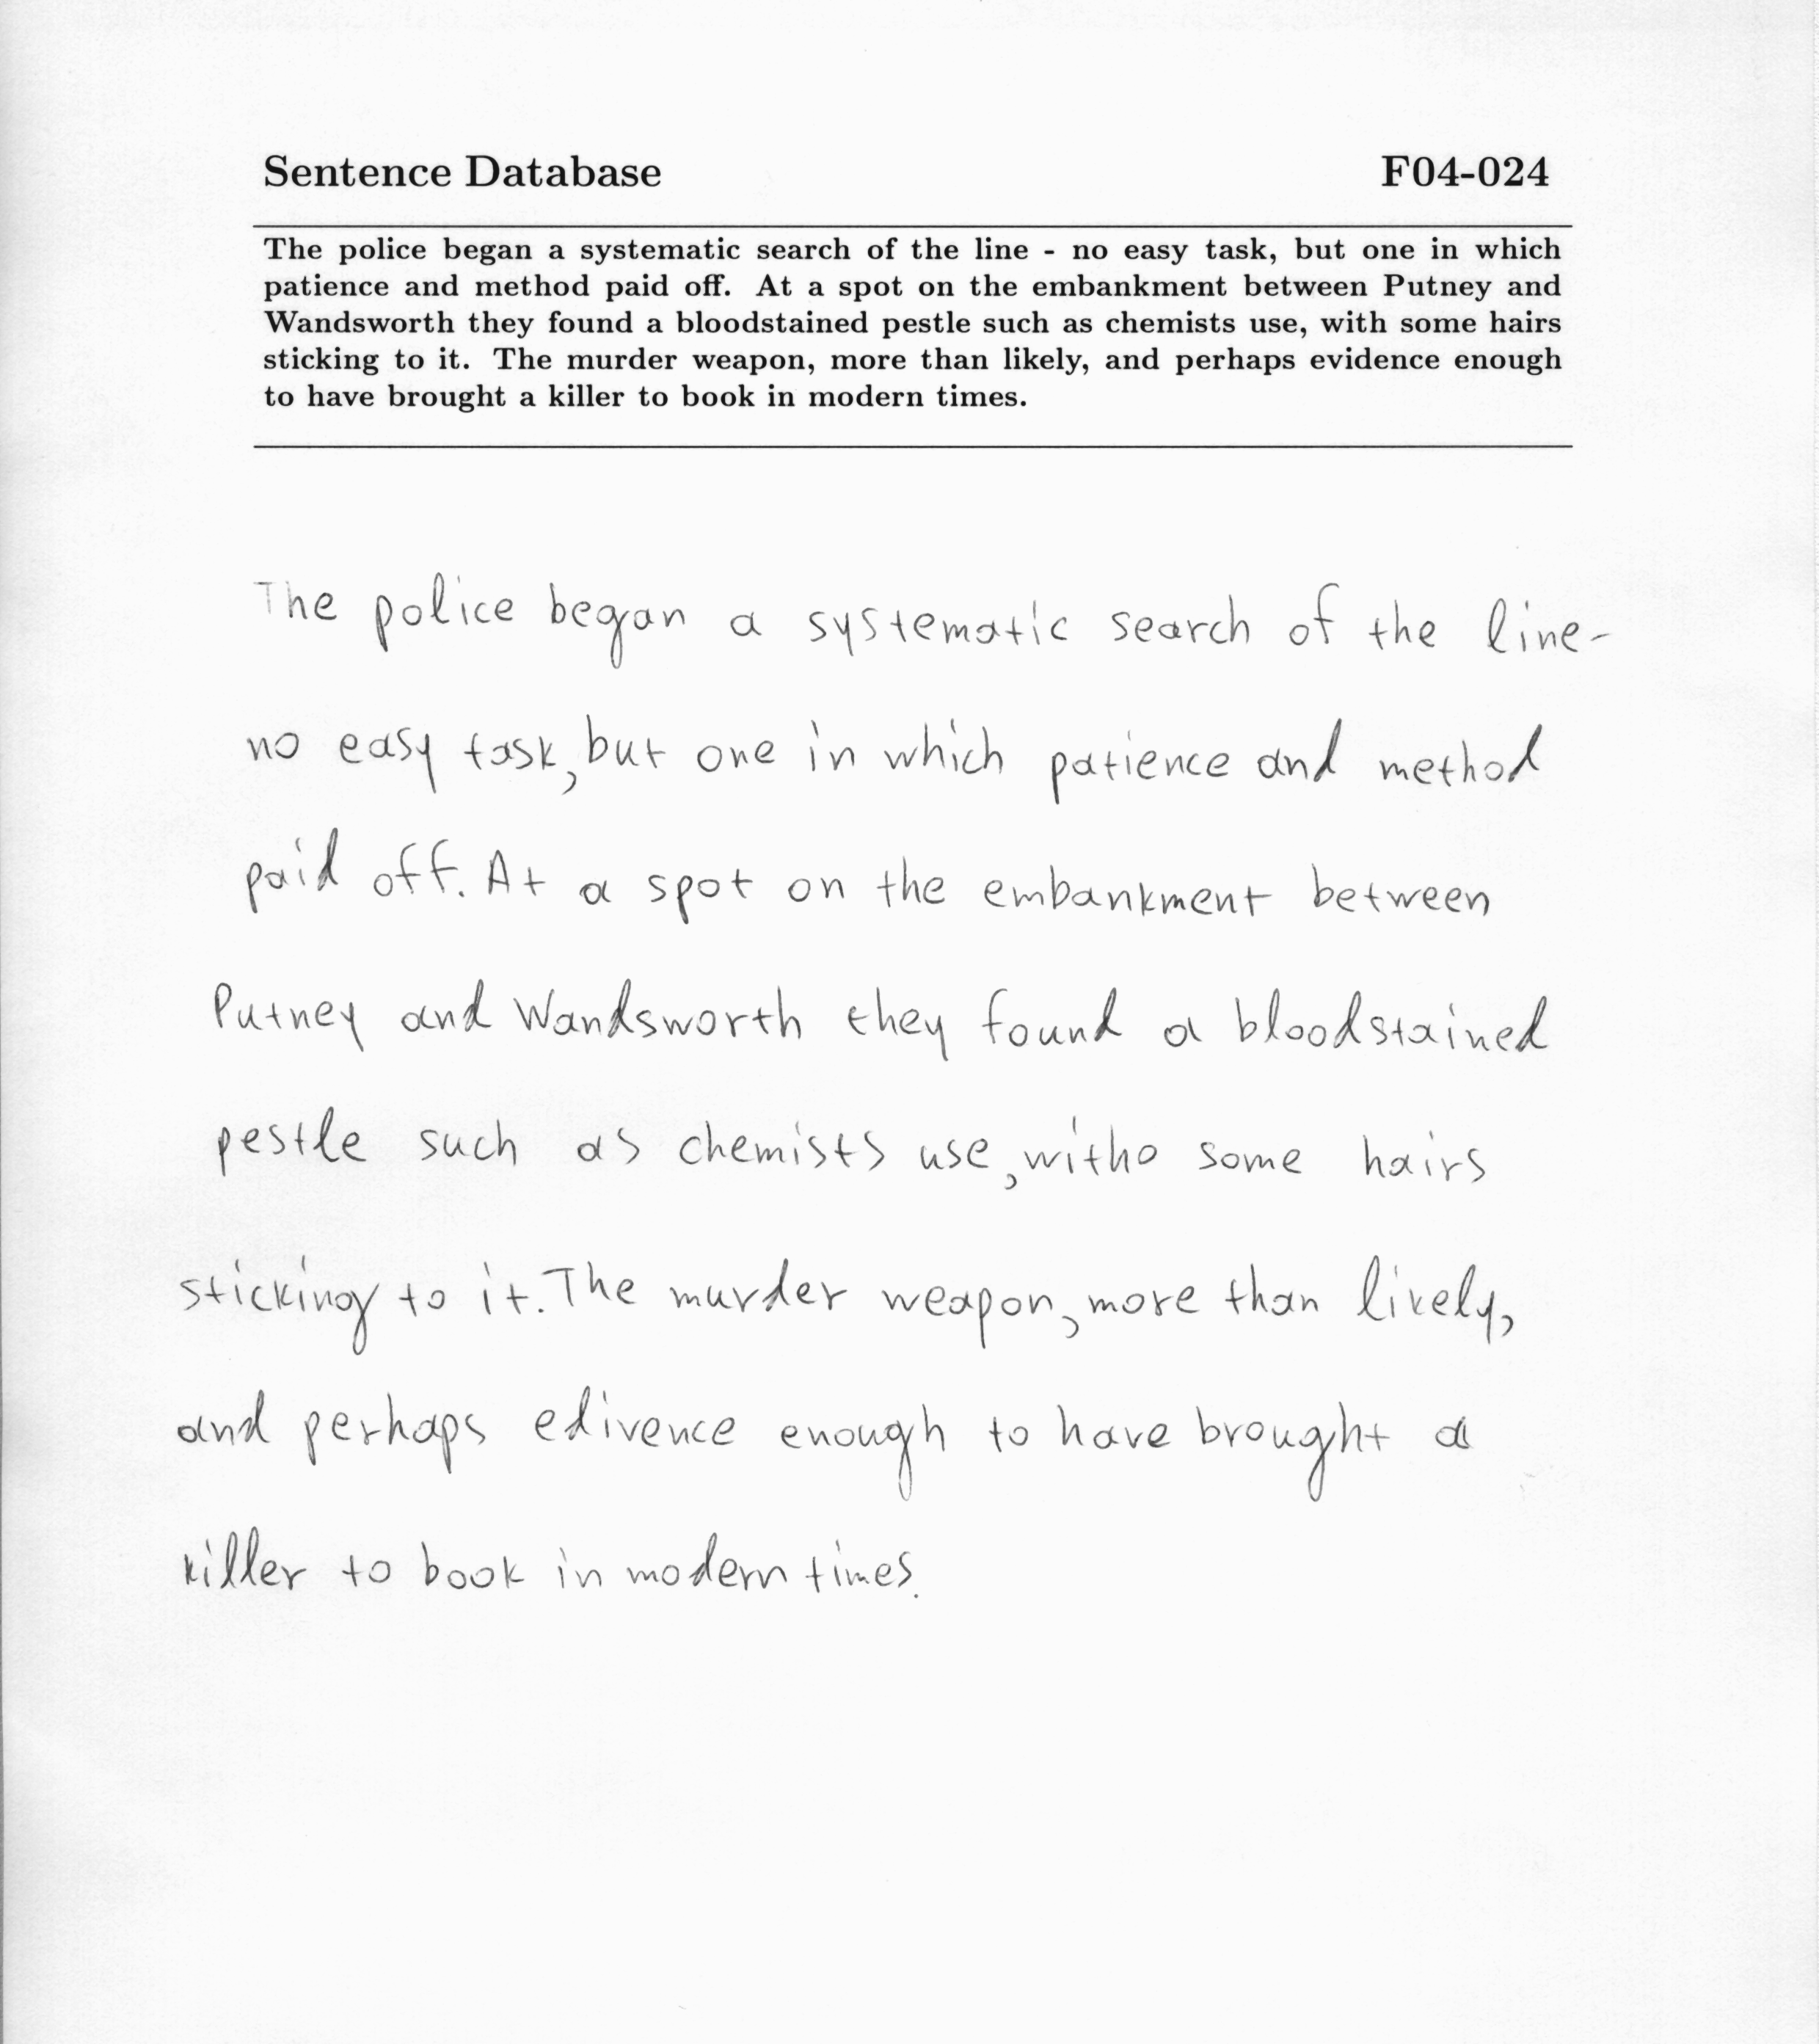 Sentence Database F04-024
The police began a systematic search of the line - no easy task, but one in which
patience and method paid off. At a spot on the embankment between Putney and
Wandsworth they found a bloodstained pestle such as chemists use, with some hairs
sticking to it. The murder weapon, more than likely, and perhaps evidence enough
to have brought a killer to book in modern times.
The police began a systematic search of the line-
no easy task, but one in which patience and method
paid off. At a spot on the embankment between
Putney and Wandsworth they found a bloodstained
pestle such as chemists use, witho some hairs
sticking to it. The murder weapon, more than likely,
and perhaps edivence enough to have brought a
killer to book in modern times.